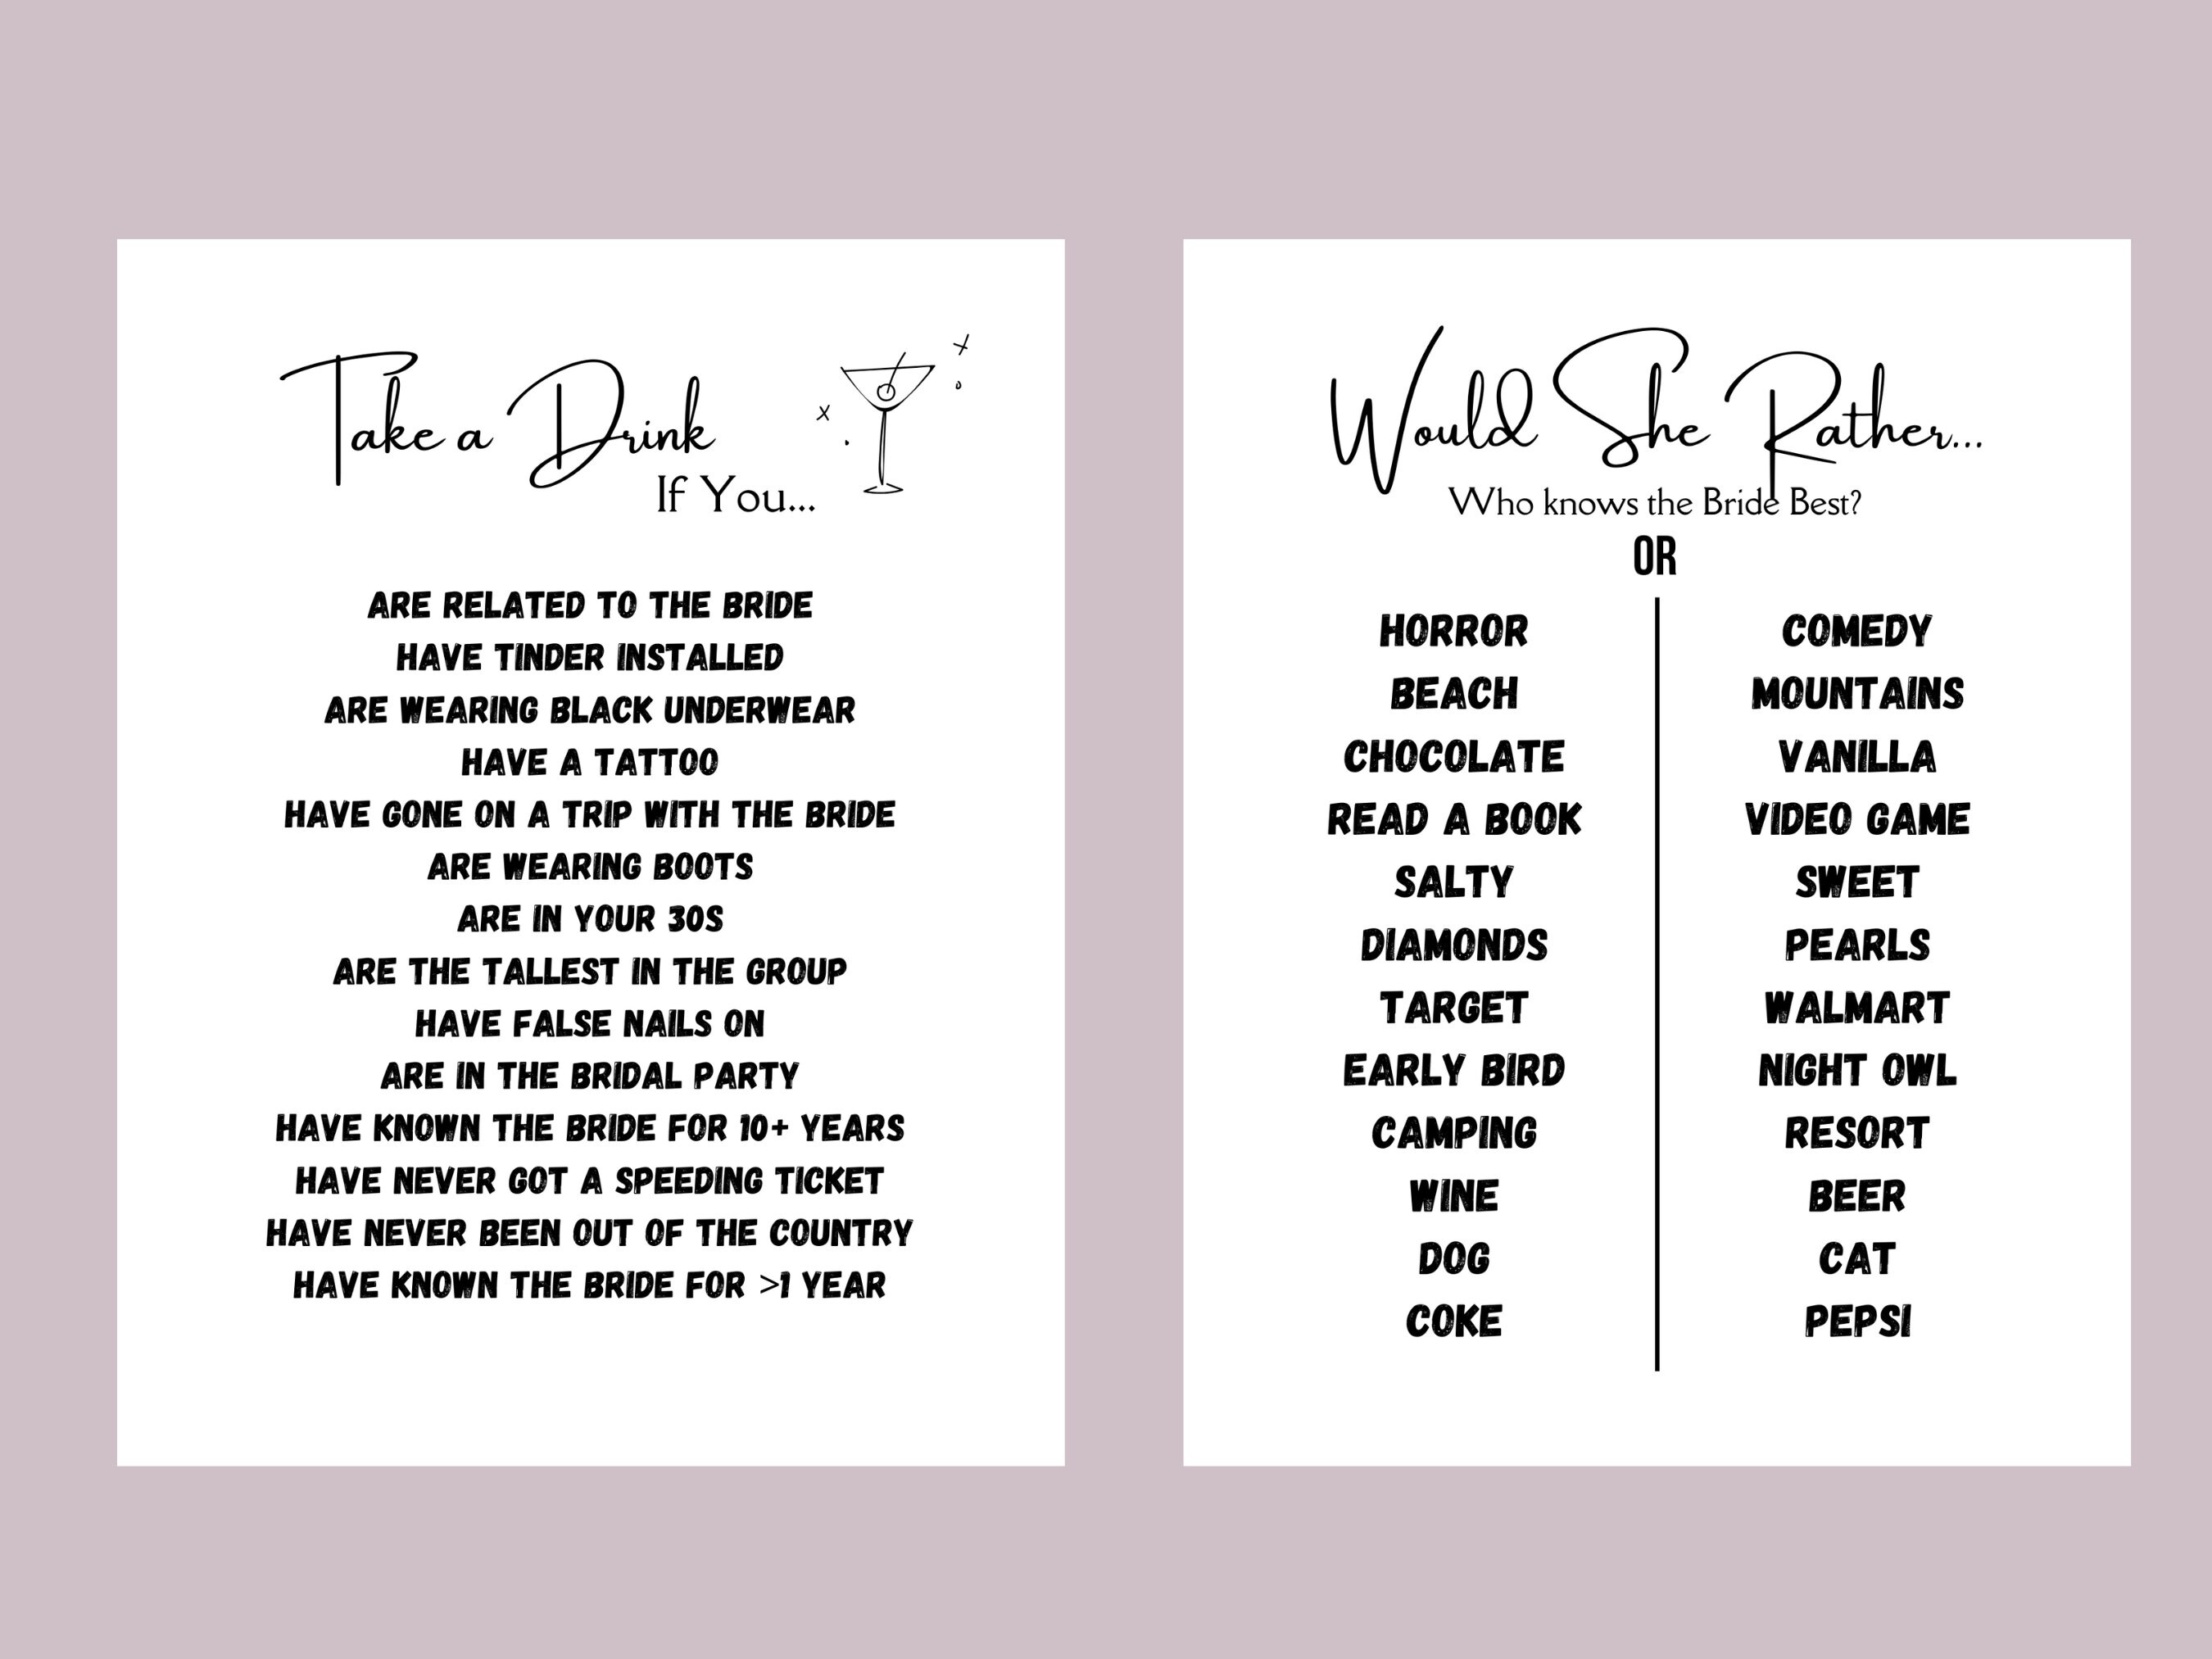 Take a Drink
If You...
ARE RELATED TO THE BRIDE
HAVE TINDER INSTALLED
ARE WEARING BLACK UNDERWEAR
HAVE A TATTOO
HAVE GONE ON A TRIP WITH THE BRIDE
ARE WEARING BOOTS
ARE IN YOUR 30S
ARE THE TALLEST IN THE GROUP
HAVE FALSE NAILS ON
ARE IN THE BRIDAL PARTY
HAVE KNOWN THE BRIDE FOR 10+ YEARS
HAVE NEVER GOT A SPEEDING TICKET
HAVE NEVER BEEN OUT OF THE COUNTRY
HAVE KNOWN THE BRIDE FOR >1 YEAR
Would She Rather...
Who knows the Bride Best?
OR
HORROR COMEDY
BEACH MOUNTAINS
CHOCOLATE VANILLA
READ A BOOK VIDEO GAME
SALTY SWEET
DIAMONDS PEARLS
TARGET WALMART
EARLY BIRD NIGHT OWL
CAMPING RESORT
WINE BEER
DOG CAT
COKE PEPSI